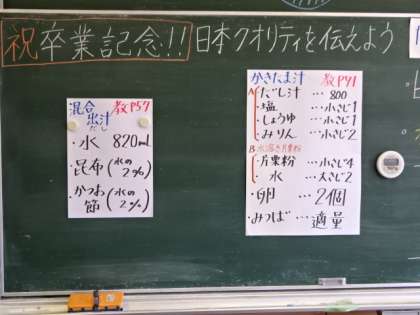 祝 卒業記念!! 日本クオリティを伝えよう
混合 教P57
出汁
だし
・水 820ml
・昆布(水の2%)
・かつお節(水の2%)
かきたま汁 教P41
A だし汁 … 800
・塩 …小さじ1
・しょうゆ …小さじ1
・みりん …小さじ2
B 水溶き片栗粉
・片栗粉 …小さじ4
・水 …大さじ2
・卵 … 2個
・みつば… 適量